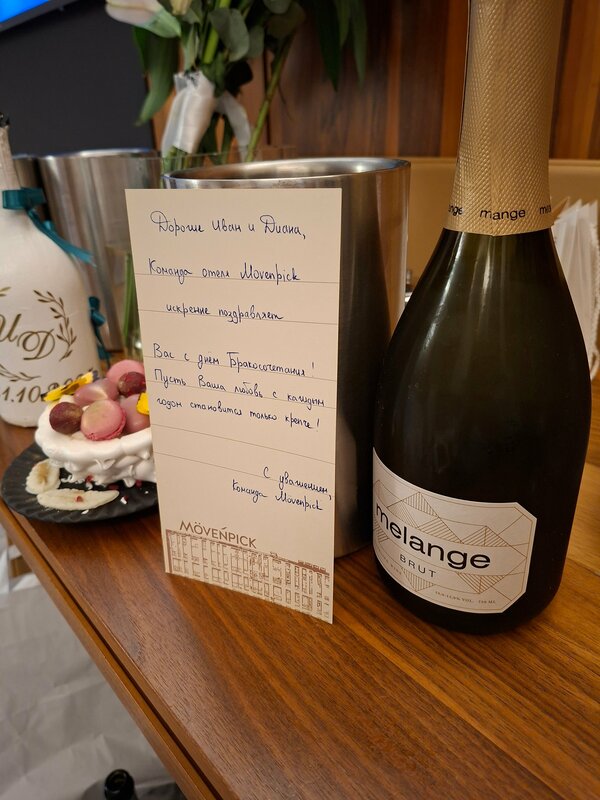 Дорогие Иван и Диана,
Команда отеля Mövenpick
искренне поздравляет
Вас с днем Бракосочетания!
Пусть Ваша любовь с каждым
годом становится только крепче!
С уважением,
Команда Mövenpick
MÖVENPICK
mange
melange
BRUT
И Д